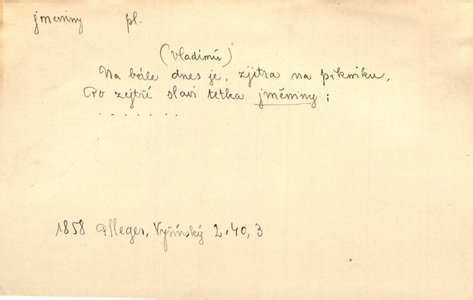 jmeniny pl.
(Vladimír)
Na bále dnes je, zjitra na pikniku,
Po zejtří slaví tetka jměniny;
. . . . . . .
1858 Pfleger, Vyšínský 2, 40, 3